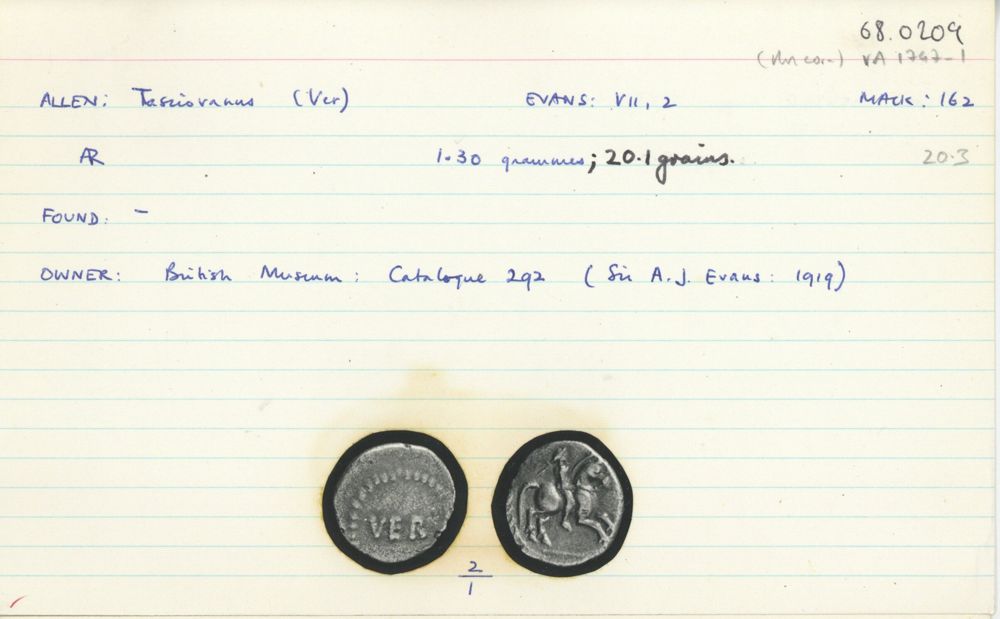 68.0209
VA 1747-1
ALLEN: Tasciovanus (Ver) EVANS: VII, 2 MACK: 162
AR 1.30 grammes; 20.1 grains. 20.3
FOUND: -
OWNER: British Museum: Catalogue 292 (Sir A.J. Evans: 1919)
VER
2
1